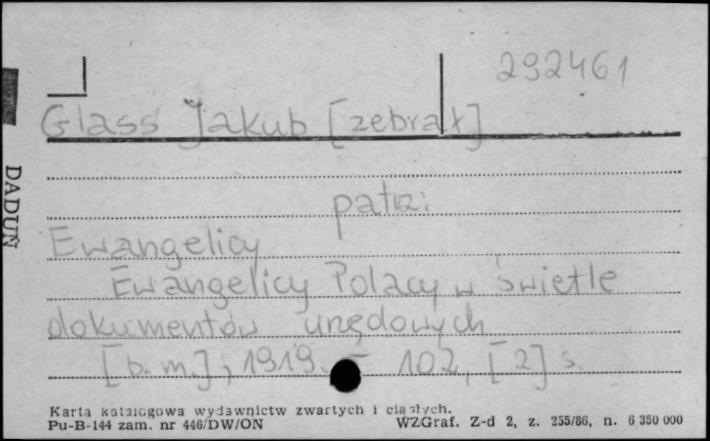 292461
Glass Jakub [zebrał]
patrz:
Ewangelicy
Ewangelicy Polacy w świetle
dokumentów urzędowych
[b. m.], 1919. - 102, [2] s.
DADUŃ
Karta katalogowa wydawnictw zwartych i ciągłych.
Pu-B-144 zam. nr 446/DW/ON WZGraf. Z-d 2, z. 255/86, n. 6 350 000